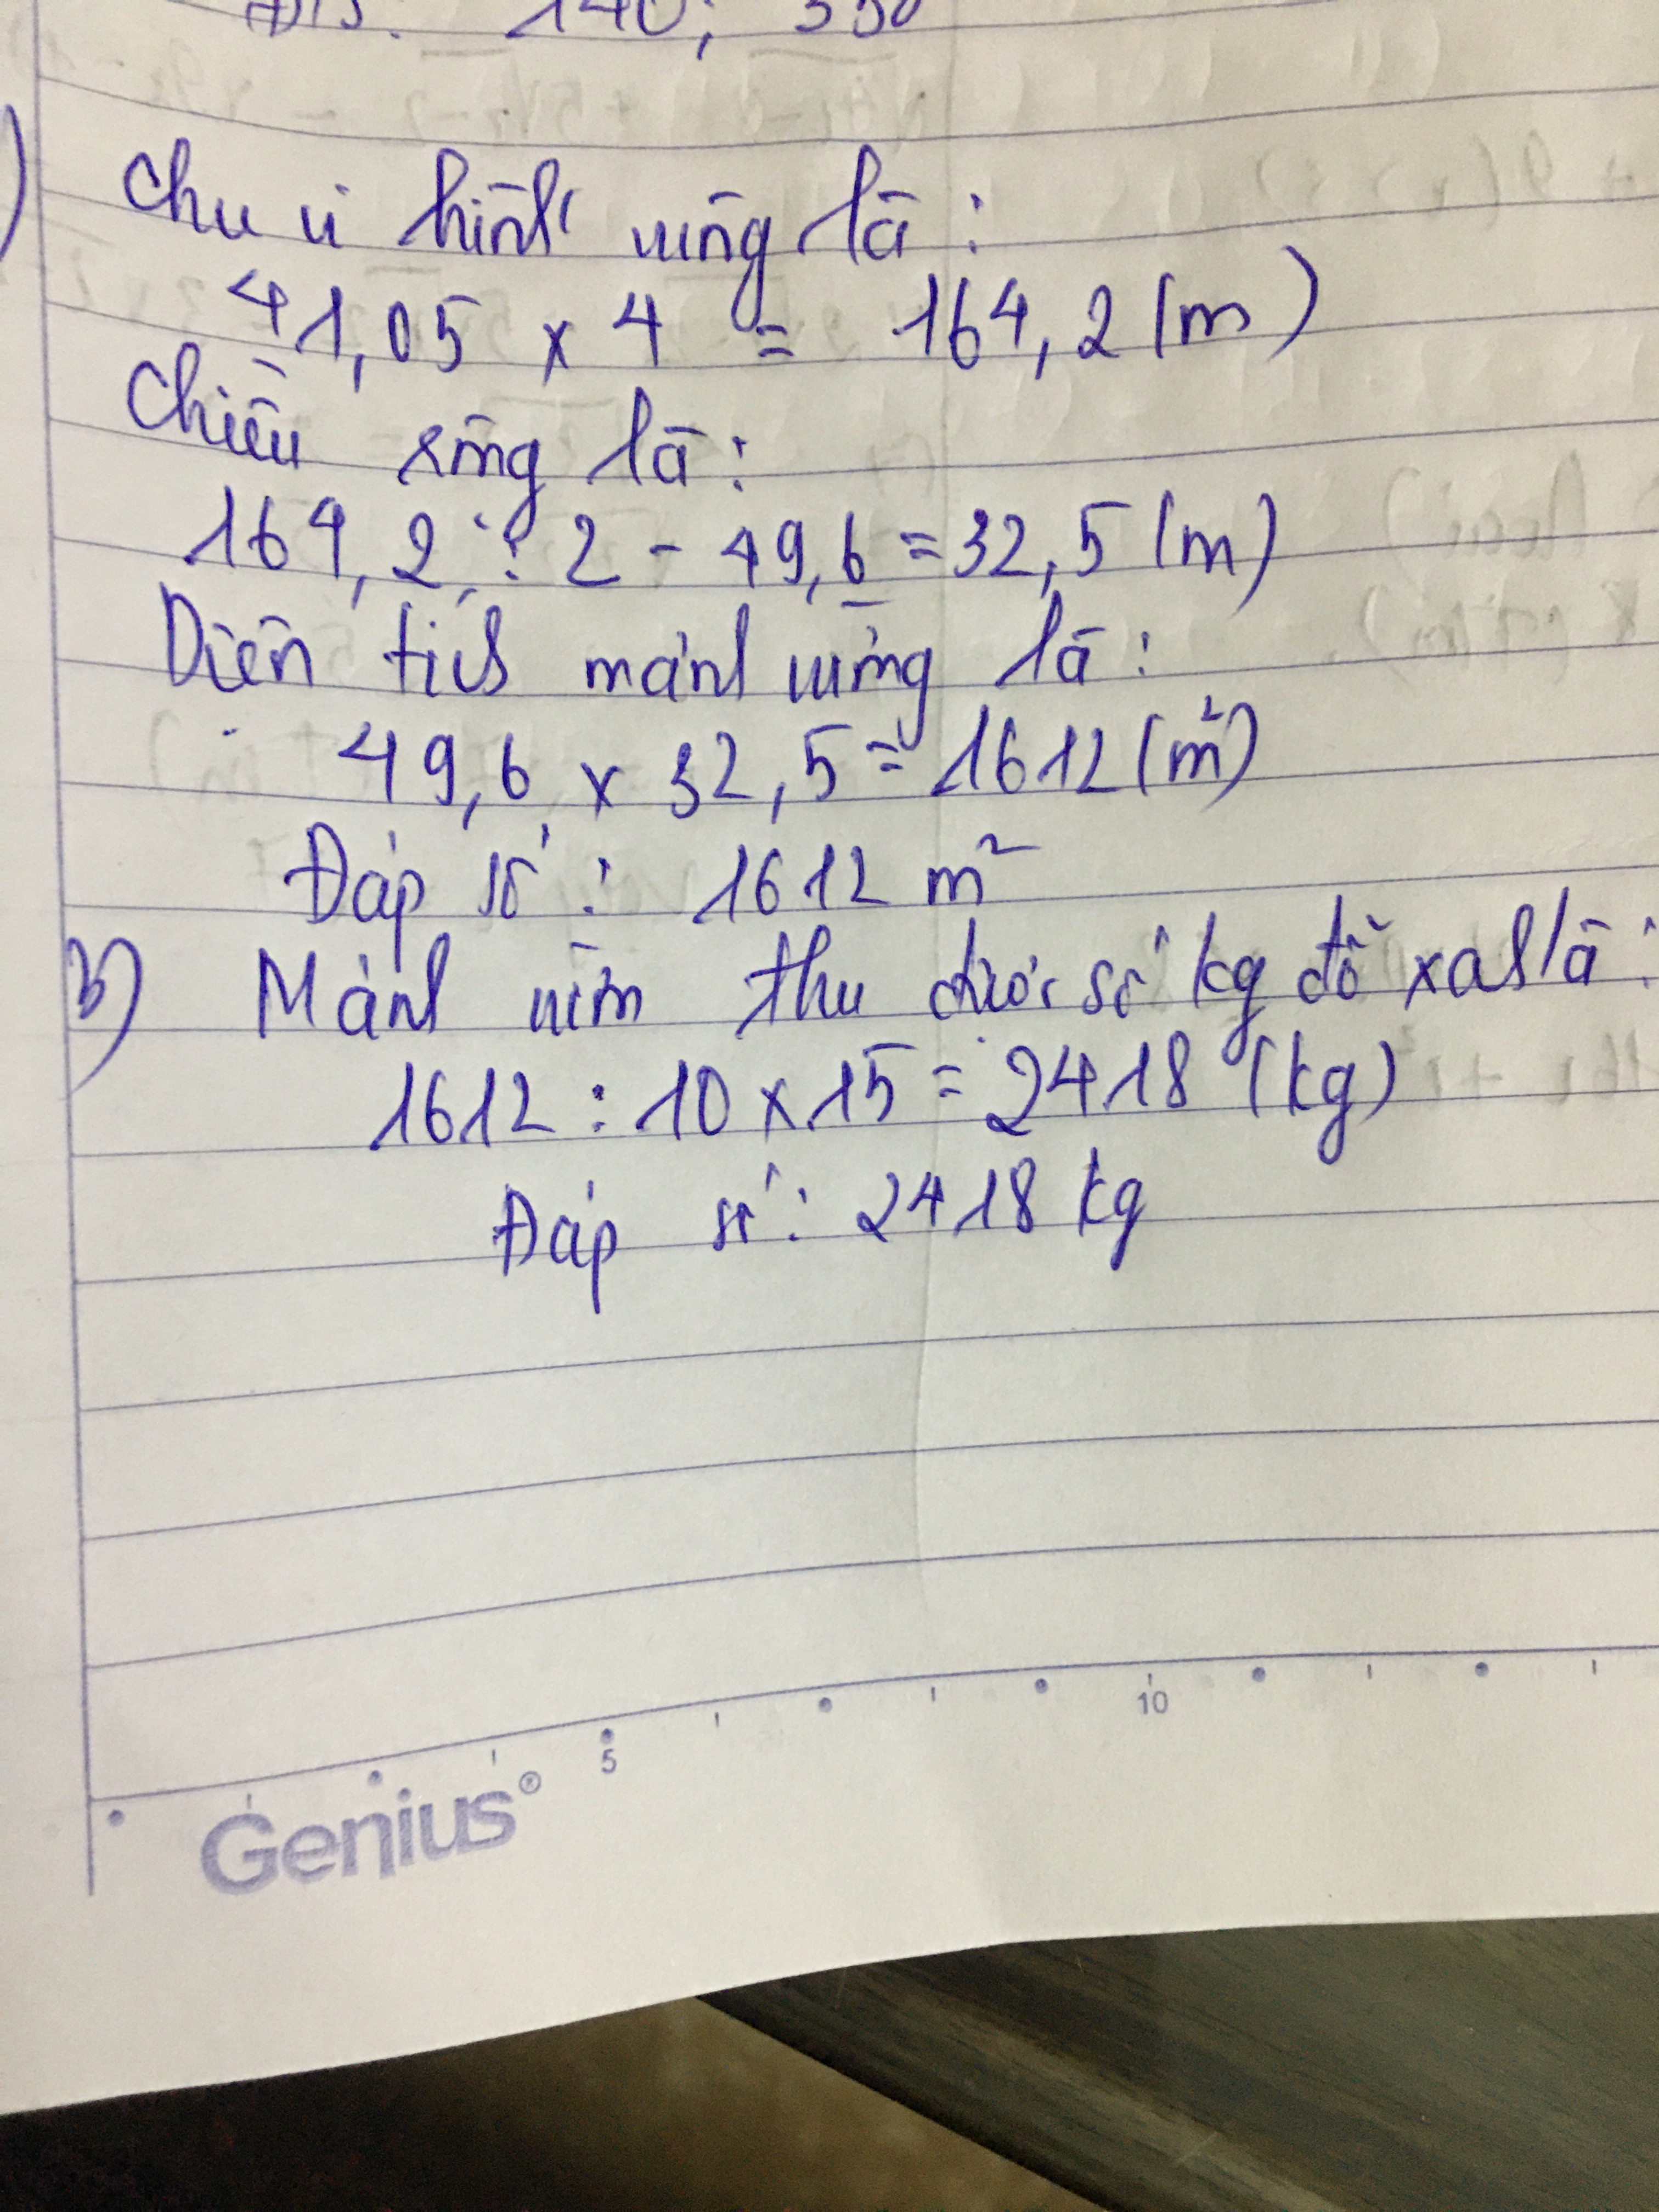 140; 350
Chu vi hình vuông là:
41,05 x 4 = 164,2 (m)
Chiều rộng là:
164,2 : 2 - 49,6 = 32,5 (m)
Diện tích mảnh vườn là:
49,6 x 32,5 = 1612 (m²)
Đáp số: 1612 m²
b) Mảnh vườn thu được số kg đỗ xanh là:
1612 : 10 x 15 = 2418 (kg)
Đáp số: 2418 kg
5
10
Genius®